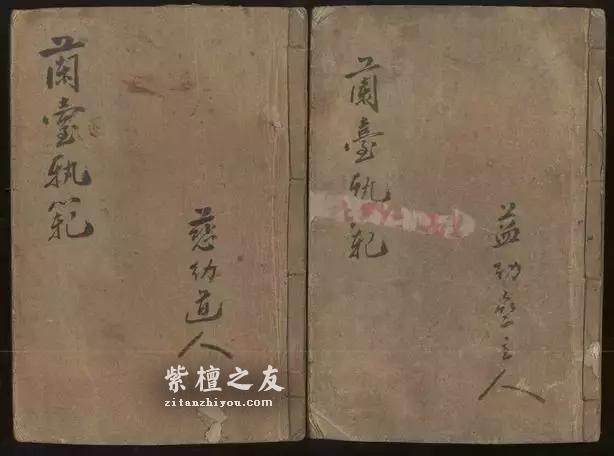 蘭臺軌範
慈幼道人
蘭臺軌範
益幼堂主人
紫檀之友
zitanzhiyou.com